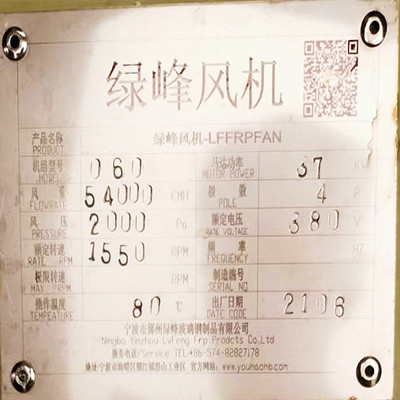 绿峰风机
产品名称 绿峰风机-LFFRPFAN
PRODUCT
机组型号 060 马达功率 37 KW
MODEL MOTOR POWER
风量 54000 CMH 极数 4 P
FLOWRATE POLE
风压 2000 Pa 额定电压 380 V
PRESSURE RATE VOLTAGE
额定转速 1550 RPM 频率 HZ
RATE RPM FREQUENCY
极限转速 RPM 制造编号
MAX RPM SERIAL NO
操作温度 80℃ 出厂日期 2106
TEMPEATURE DATE CODE
宁波市鄞州绿峰玻璃钢制品有限公司
Ningbo Yinzhou LvFeng Frp Prodcts Co.Ltd
服务电话/Service TEL:+86-574-82827178
地址:宁波市海曙区 工业区 官方网站: www.youhaohb.com